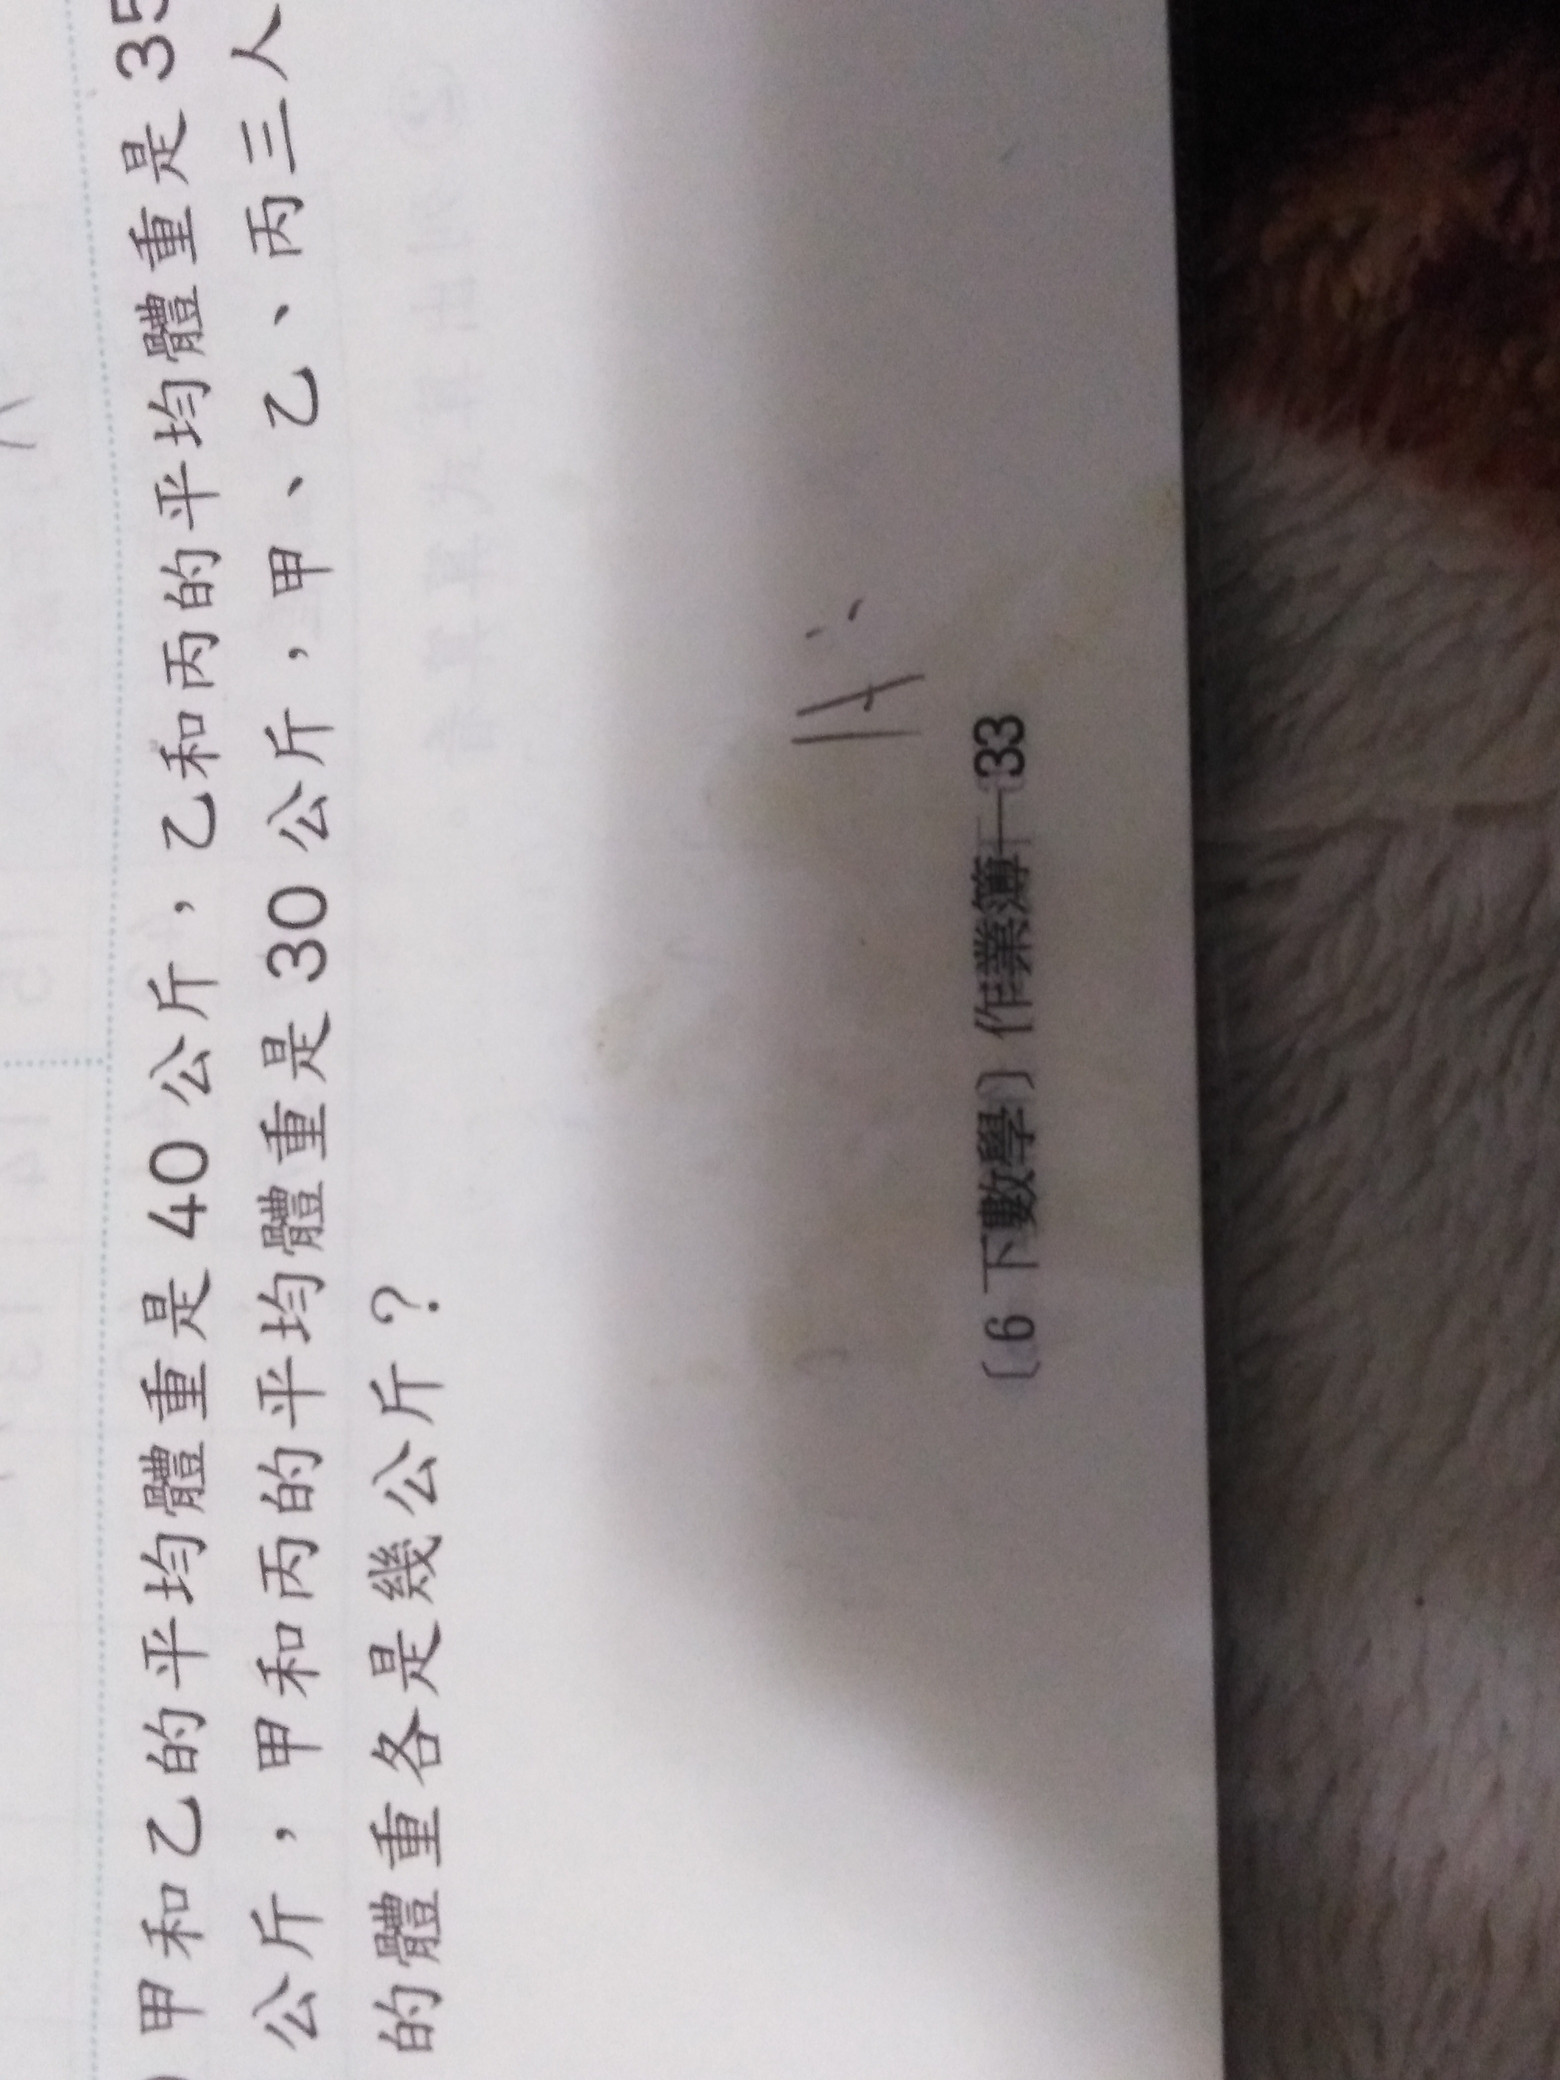 甲和乙的平均體重是40公斤，乙和丙的平均體重是35
公斤，甲和丙的平均體重是30公斤，甲、乙、丙三人
的體重各是幾公斤？
〔6下數學〕作業簿—33